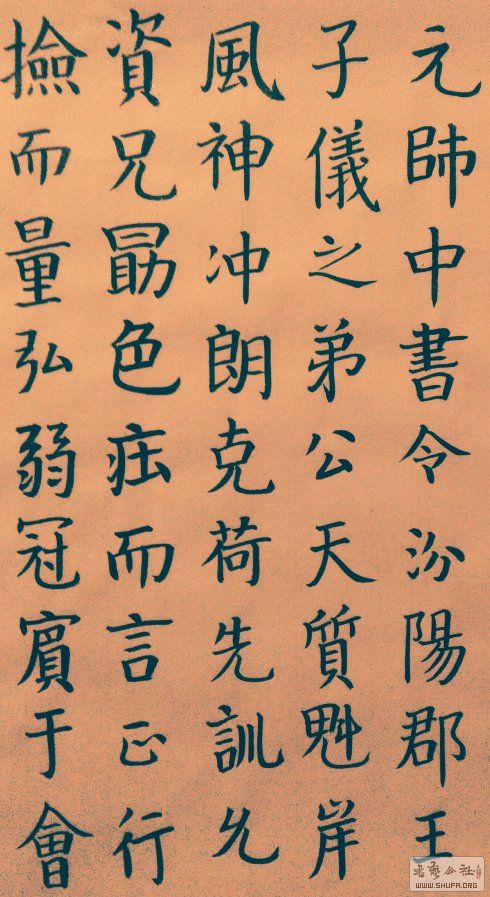 元帥中書令汾陽郡王
子儀之弟公天質魁岸
風神冲朗克荷先訓允
資兄勗色莊而言正行
撿而量弘弱冠賓于會
WWW.SHUFA.ORG